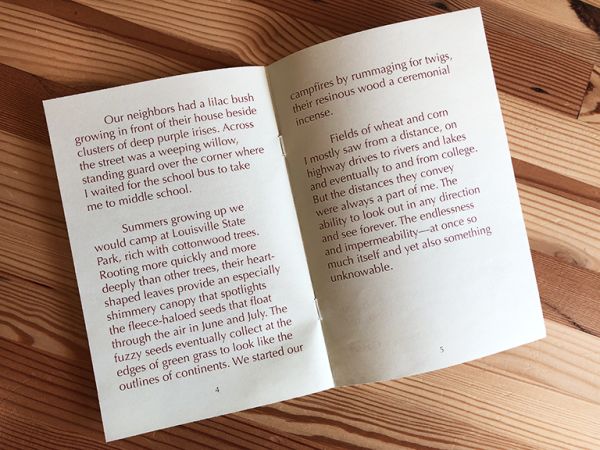 Our neighbors had a lilac bush
growing in front of their house beside
clusters of deep purple irises. Across
the street was a weeping willow,
standing guard over the corner where
I waited for the school bus to take
me to middle school.
Summers growing up we
would camp at Louisville State
Park, rich with cottonwood trees.
Rooting more quickly and more
deeply than other trees, their heart-
shaped leaves provide an especially
shimmery canopy that spotlights
the fleece-haloed seeds that float
through the air in June and July. The
fuzzy seeds eventually collect at the
edges of green grass to look like the
outlines of continents. We started our
4
campfires by rummaging for twigs,
their resinous wood a ceremonial
incense.
Fields of wheat and corn
I mostly saw from a distance, on
highway drives to rivers and lakes
and eventually to and from college.
But the distances they convey
were always a part of me. The
ability to look out in any direction
and see forever. The endlessness
and impermeability—at once so
much itself and yet also something
unknowable.
5